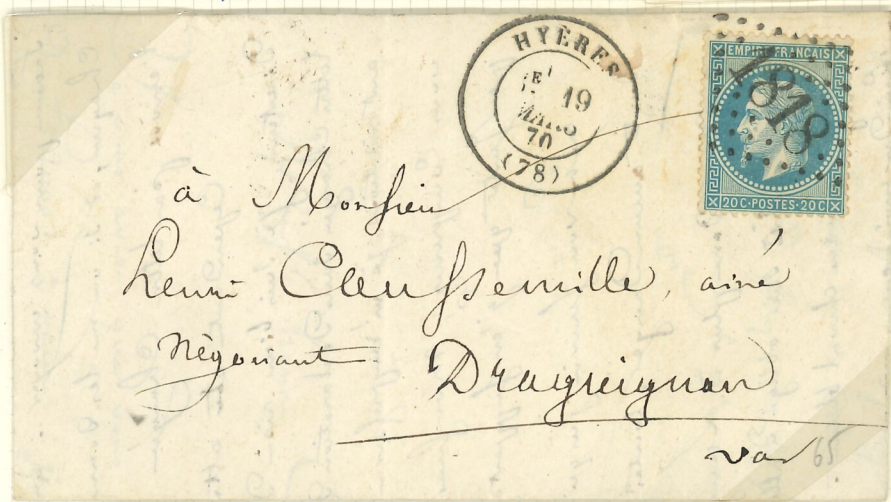 HYÈRES
E 19
MARS
70
(78)
EMPIRE FRANÇAIS
1818
20 C·POSTES·20 C
à Monsieur
Henri Caussemille, ainé
Négociant
Draguignan
Var
65